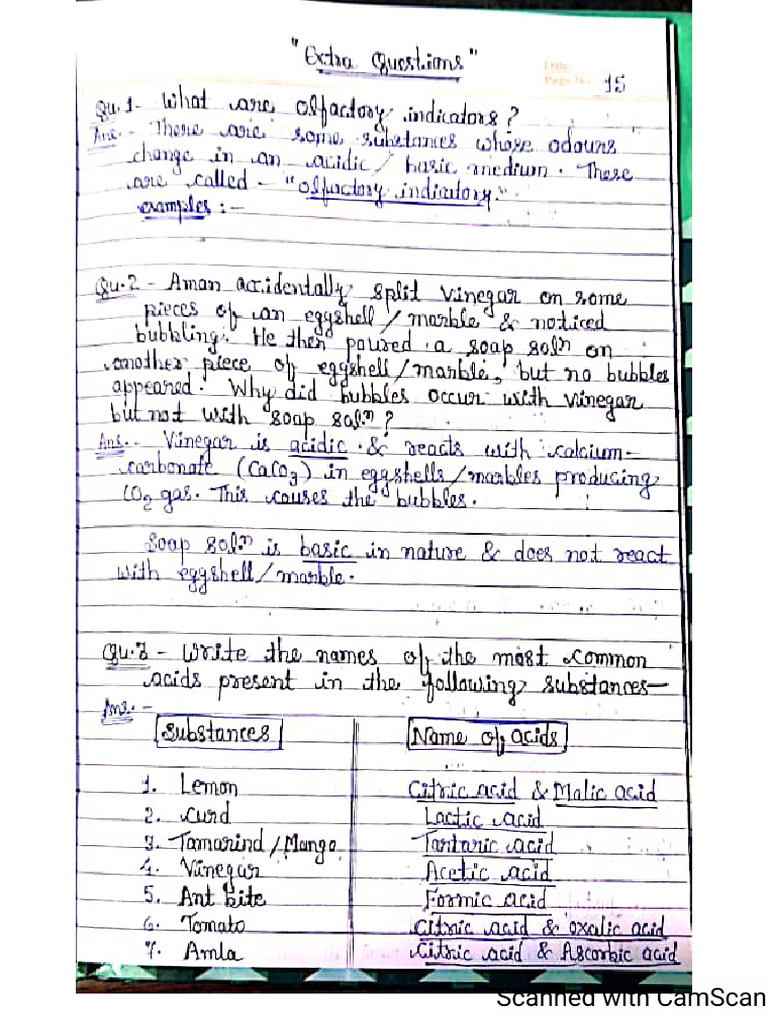 "Extra Questions"
Date
Page No. 15
Qu.1- What are olfactory indicators?
Ans.- There are some substances whose odours
change in an acidic/basic medium. These
are called - "olfactory indicators."
examples:-
Qu.2 - Aman accidentally split vinegar on some
pieces of an eggshell/marble & noticed
bubbling. He then poured a soap solⁿ on
another piece of eggshell/marble, but no bubbles
appeared. Why did bubbles occur with vinegar
but not with soap solⁿ?
Ans.- Vinegar is acidic & reacts with calcium-
carbonate (CaCO₃) in eggshells/marbles producing
CO₂ gas. This causes the bubbles.
Soap solⁿ is basic in nature & does not react
with eggshell/marble.
Qu.3 - Write the names of the most common
acids present in the following substances—
Ans.-
Substances Name of acids
1. Lemon Citric acid & Malic acid
2. Curd Lactic acid
3. Tamarind/Mango Tartaric acid
4. Vinegar Acetic acid
5. Ant bite Formic acid
6. Tomato Citric acid & oxalic acid
7. Amla Citric acid & Ascorbic acid
Scanned with CamScan